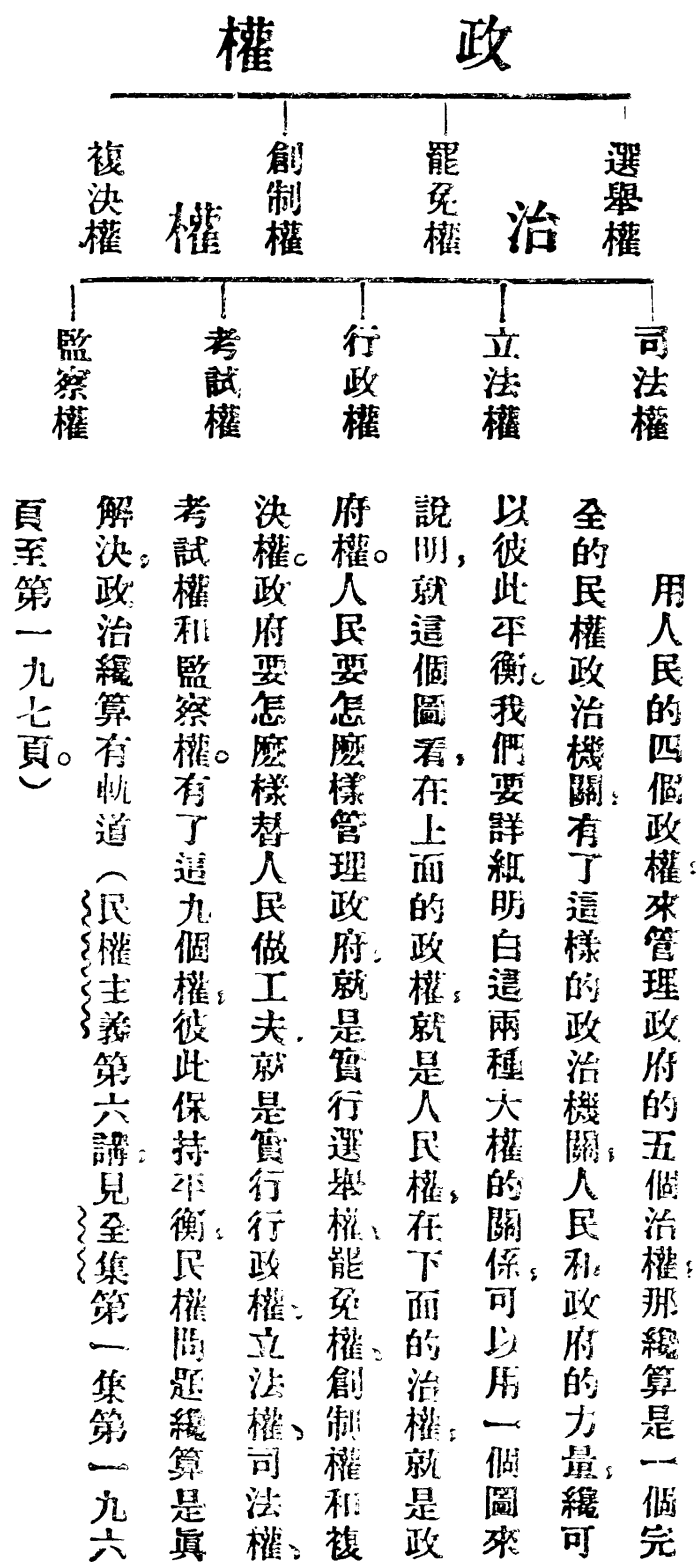 政權
選舉權
罷免權
創制權
複決權
治權
司法權
立法權
行政權
考試權
監察權
用人民的四個政權,來管理政府的五個治權,那纔算是一個完
全的民權政治機關,有了這樣的政治機關,人民和政府的力量,纔可
以彼此平衡。我們要詳細明白這兩種大權的關係,可以用一個圖來
說明,就這個圖看,在上面的政權,就是人民權,在下面的治權,就是政
府權。人民要怎麼樣管理政府,就是實行選舉權、罷免權、創制權和複
決權。政府要怎麼樣替人民做工夫,就是實行行政權、立法權、司法權、
考試權和監察權。有了這九個權,彼此保持平衡,民權問題纔算是眞
解決,政治纔算有軌道(民權主義第六講,見全集第一集第一九六
頁至第一九七頁。)